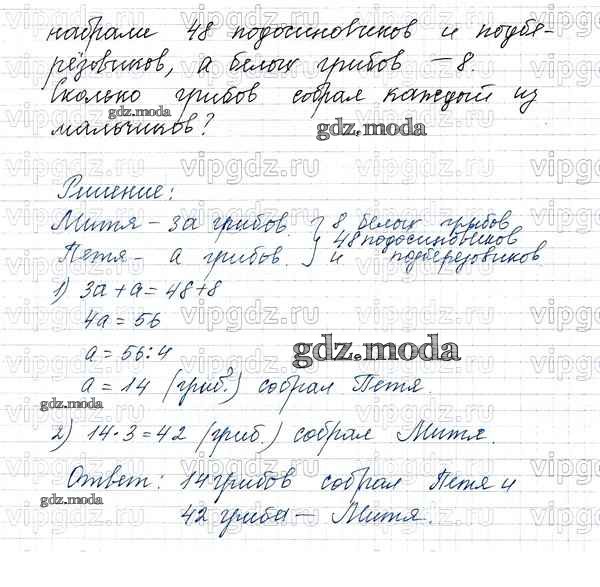 набрали 48 подосиновиков и подбе-
рёзовиков, а белых грибов – 8.
Сколько грибов собрал каждый из
мальчиков?
gdz.moda
gdz.moda
Решение:
Митя – 3а грибов. } 8 белых грибов
Петя – а грибов. } 48 подосиновиков
и подберезовиков
1) 3а + а = 48 + 8
4а = 56
а = 56 : 4
gdz.moda
а = 14 (гриб.) собрал Петя.
gdz.moda
2) 14 · 3 = 42 (гриб.) собрал Митя.
Ответ: 14 грибов собрал Петя и
gdz.moda
42 гриба – Митя.
vipgdz.ru